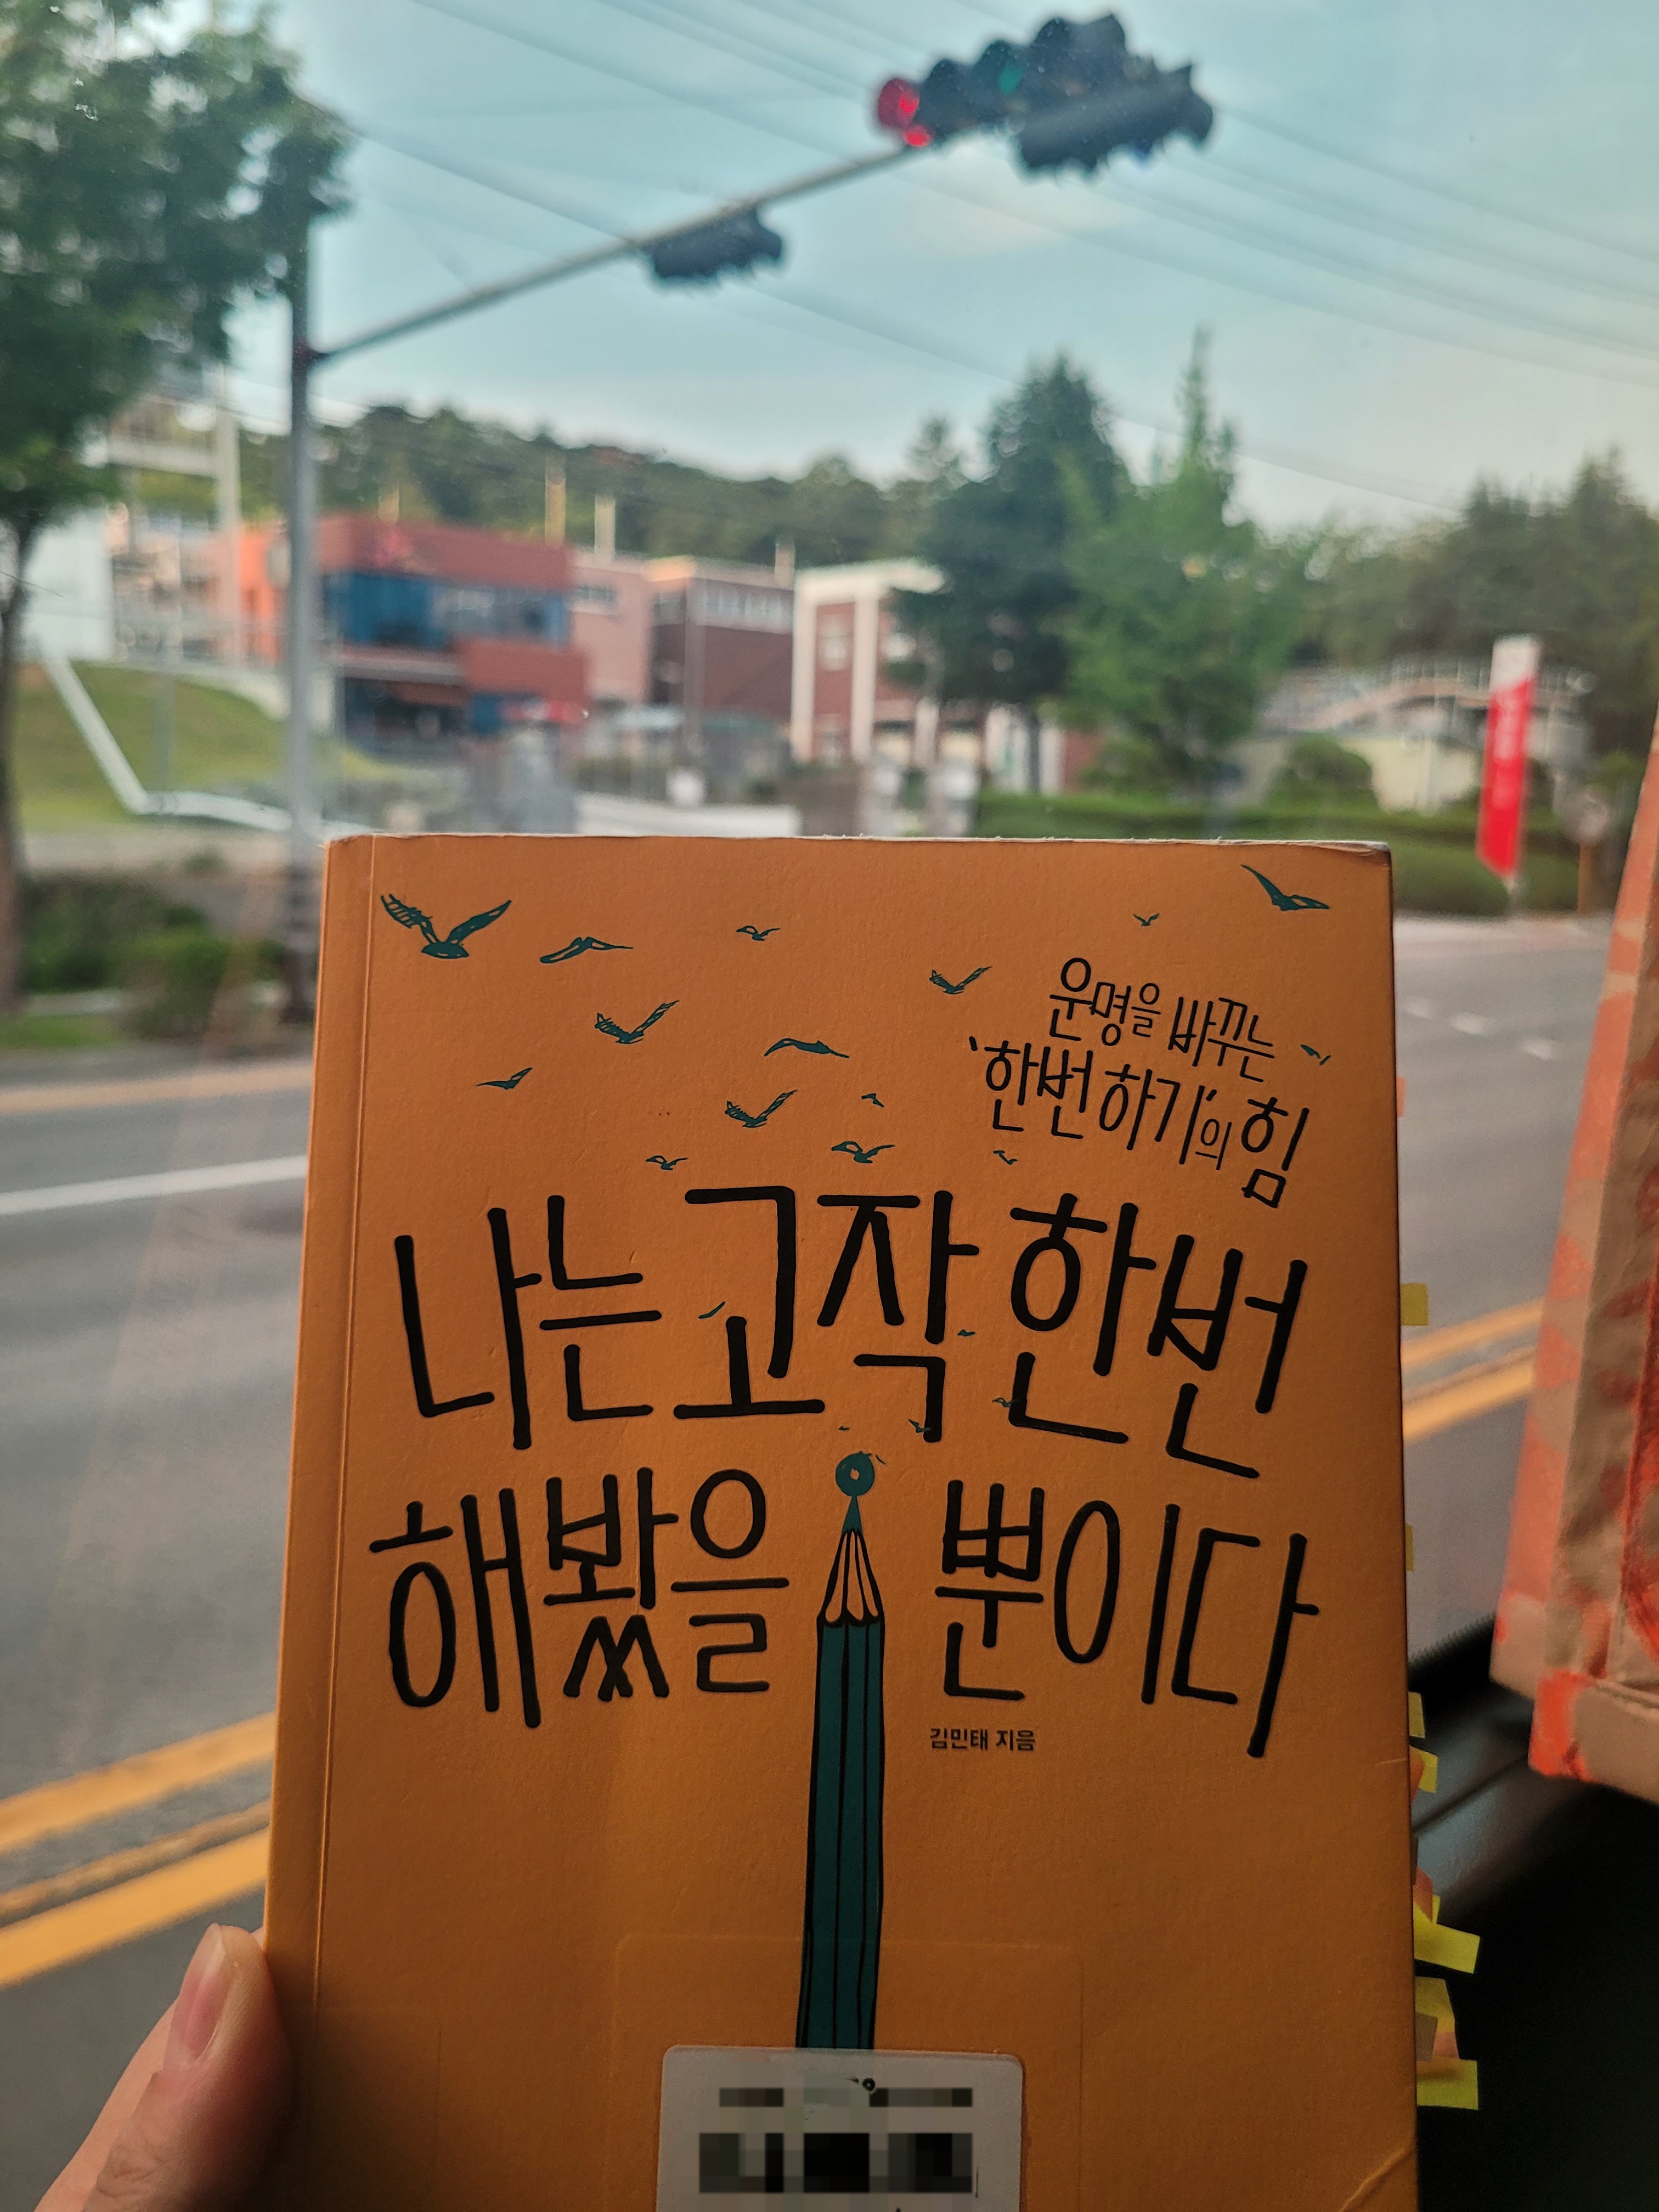 운명을 바꾸는
'한번 하기'의 힘
나는 고작 한번
해봤을 뿐이다
김민태 지음